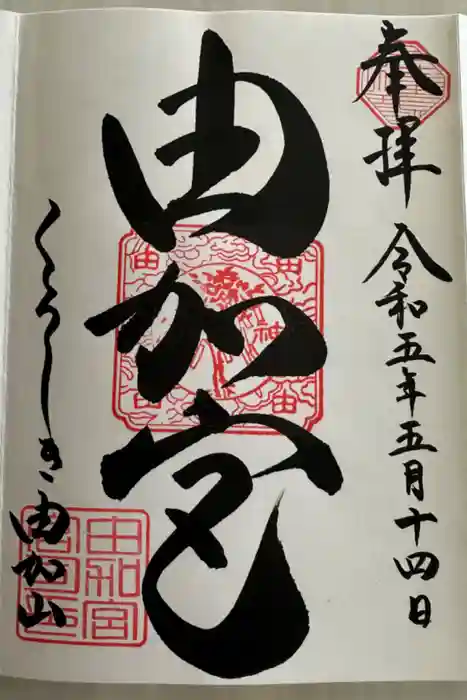 奉拝 令和五年五月十四日
由加宮
くらしき由加山